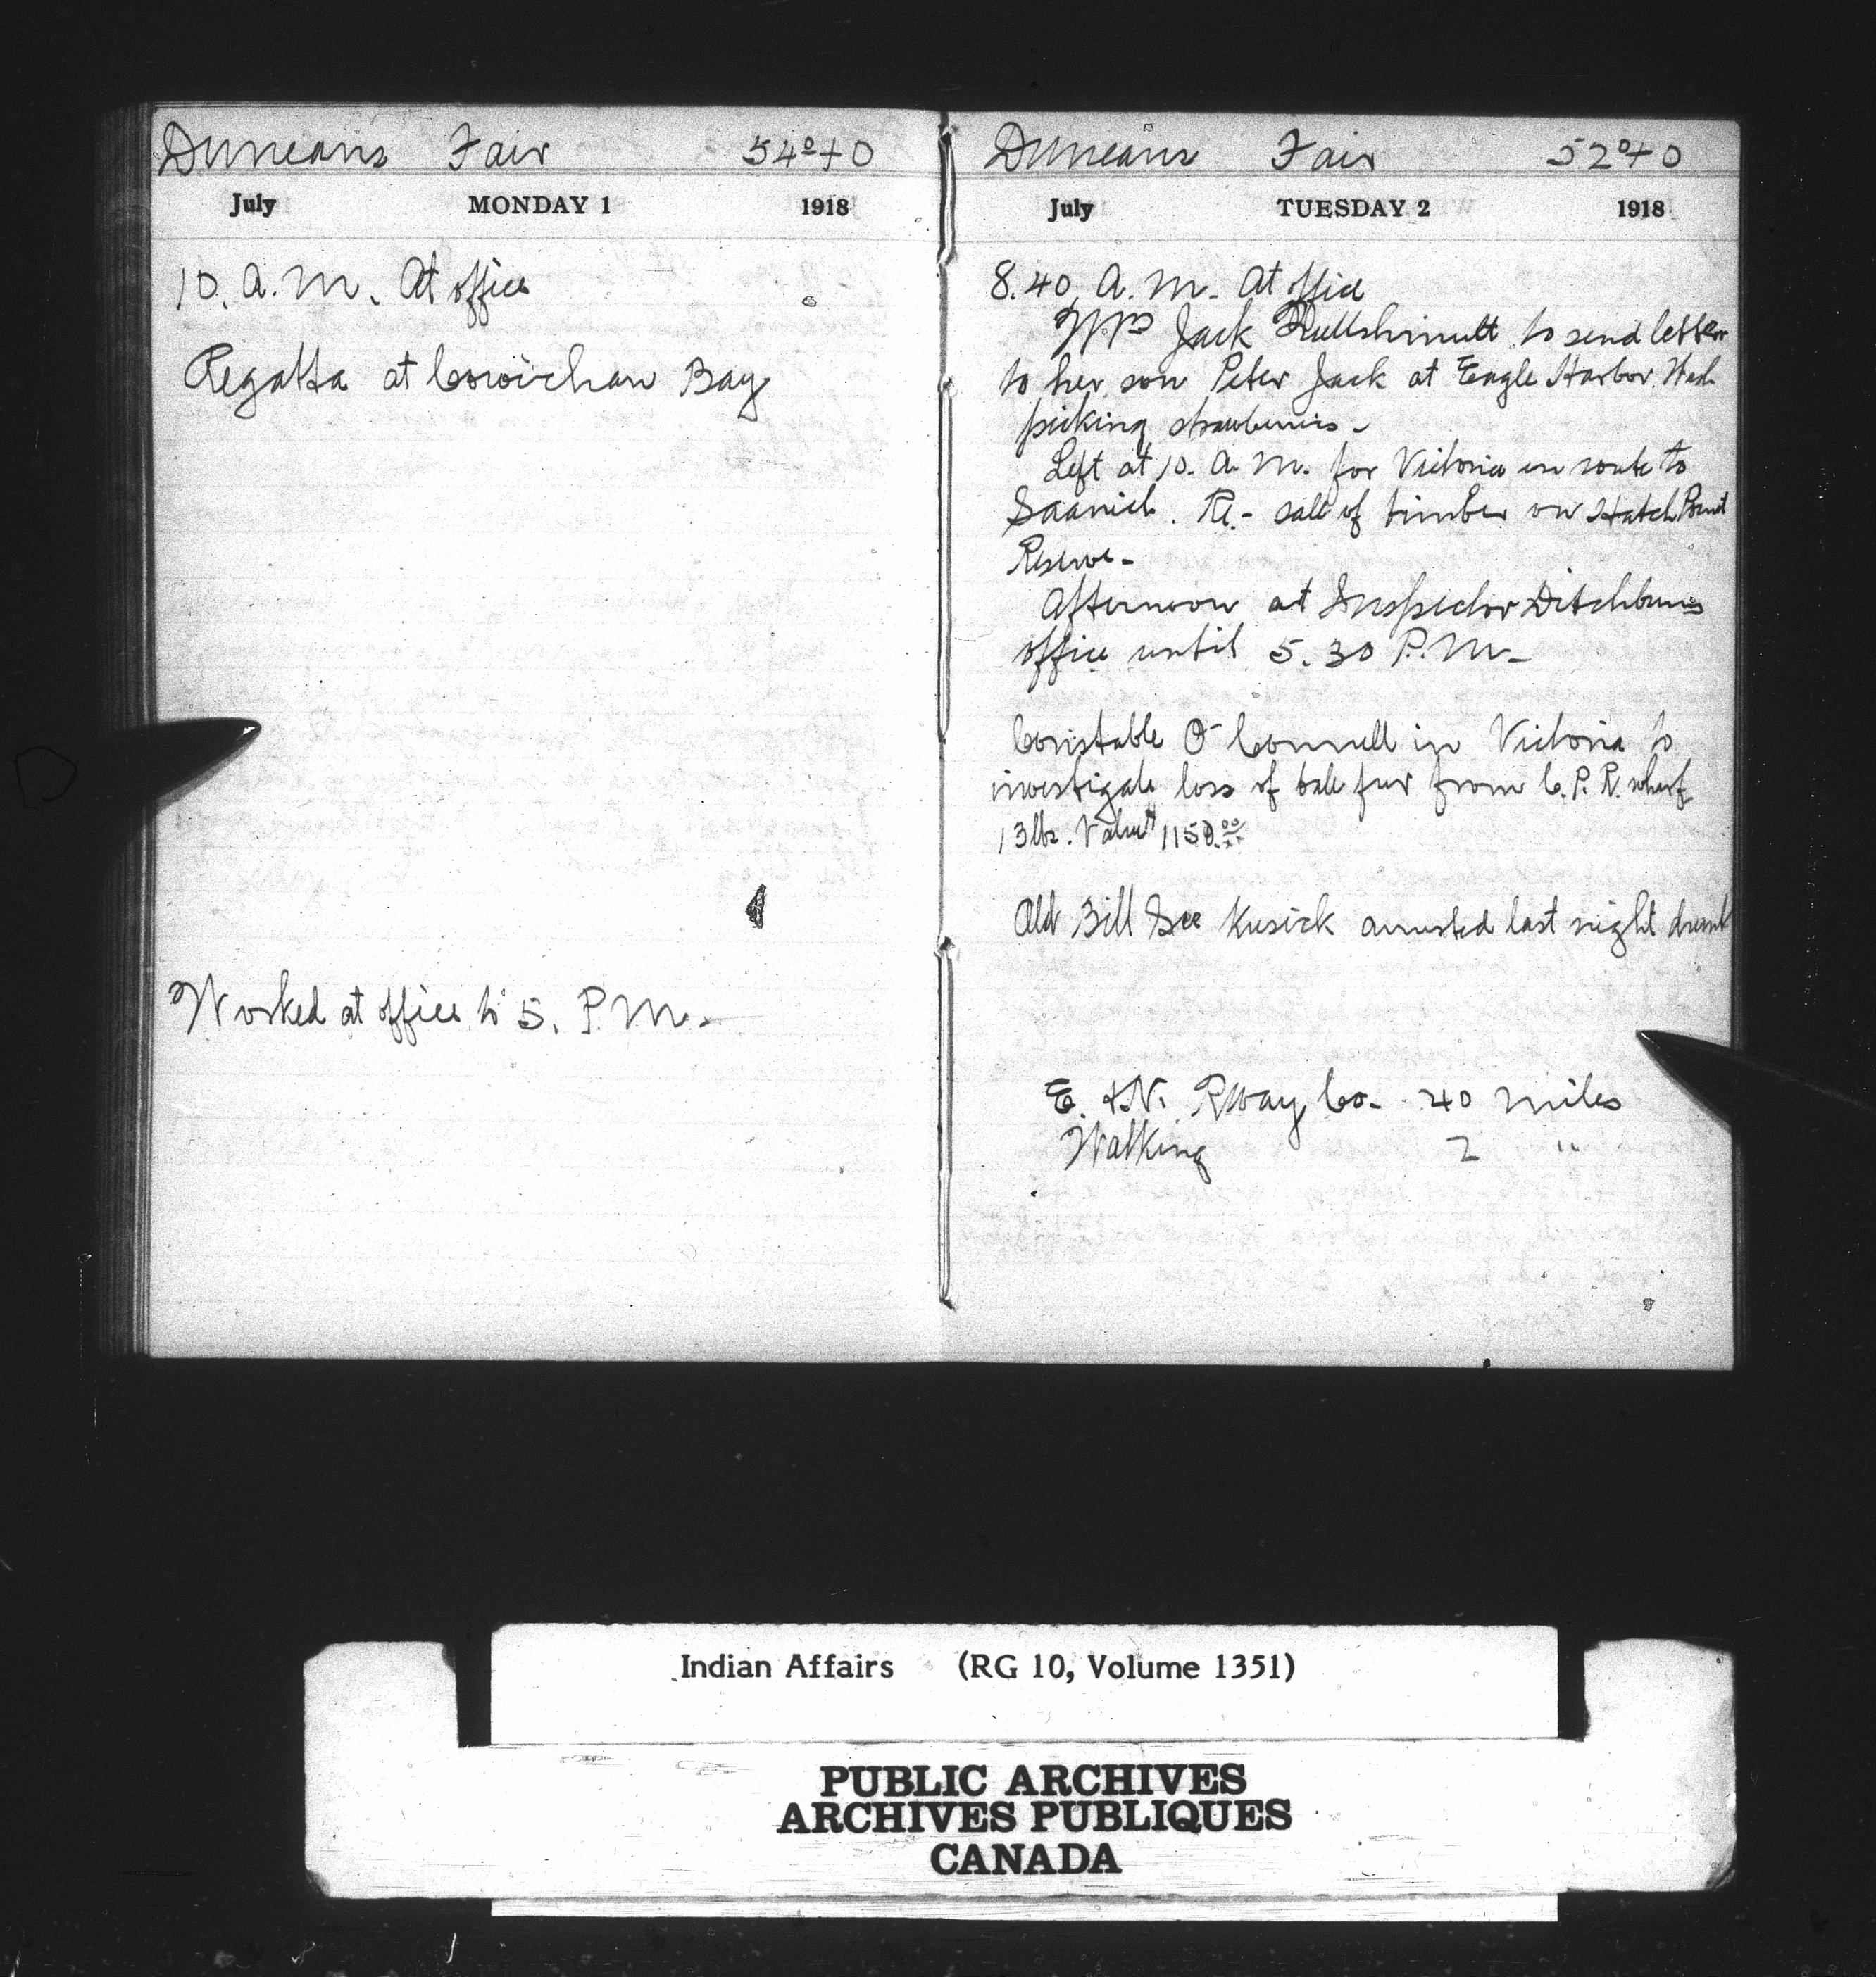 Duncans Fair 54°+0
July MONDAY 1 1918
10. A.M. At office
Regatta at Cowichan Bay
Worked at office to 5. P.M.
Duncans Fair 52°+0
July TUESDAY 2 1918
8.40 A.M. At office
Mrs Jack to send letter
to her son Peter Jack at Eagle Harbor Wash
picking strawberries -
Left at 10. A.M. for Victoria en route to
Saanich. Re - sale of timber on Hatch Point
Reserve -
Afternoon at Inspector Ditchburns
office until 5.30 P.M. -
Constable O'Connell in Victoria to
investigate loss of bale fur from C.P.R. wharf
13 lbs. Value
Old Bill See Kusick arrested last night drunk
E. & N. Rway Co. 40 miles
Walking 2 "
Indian Affairs (RG 10, Volume 1351)
PUBLIC ARCHIVES
ARCHIVES PUBLIQUES
CANADA